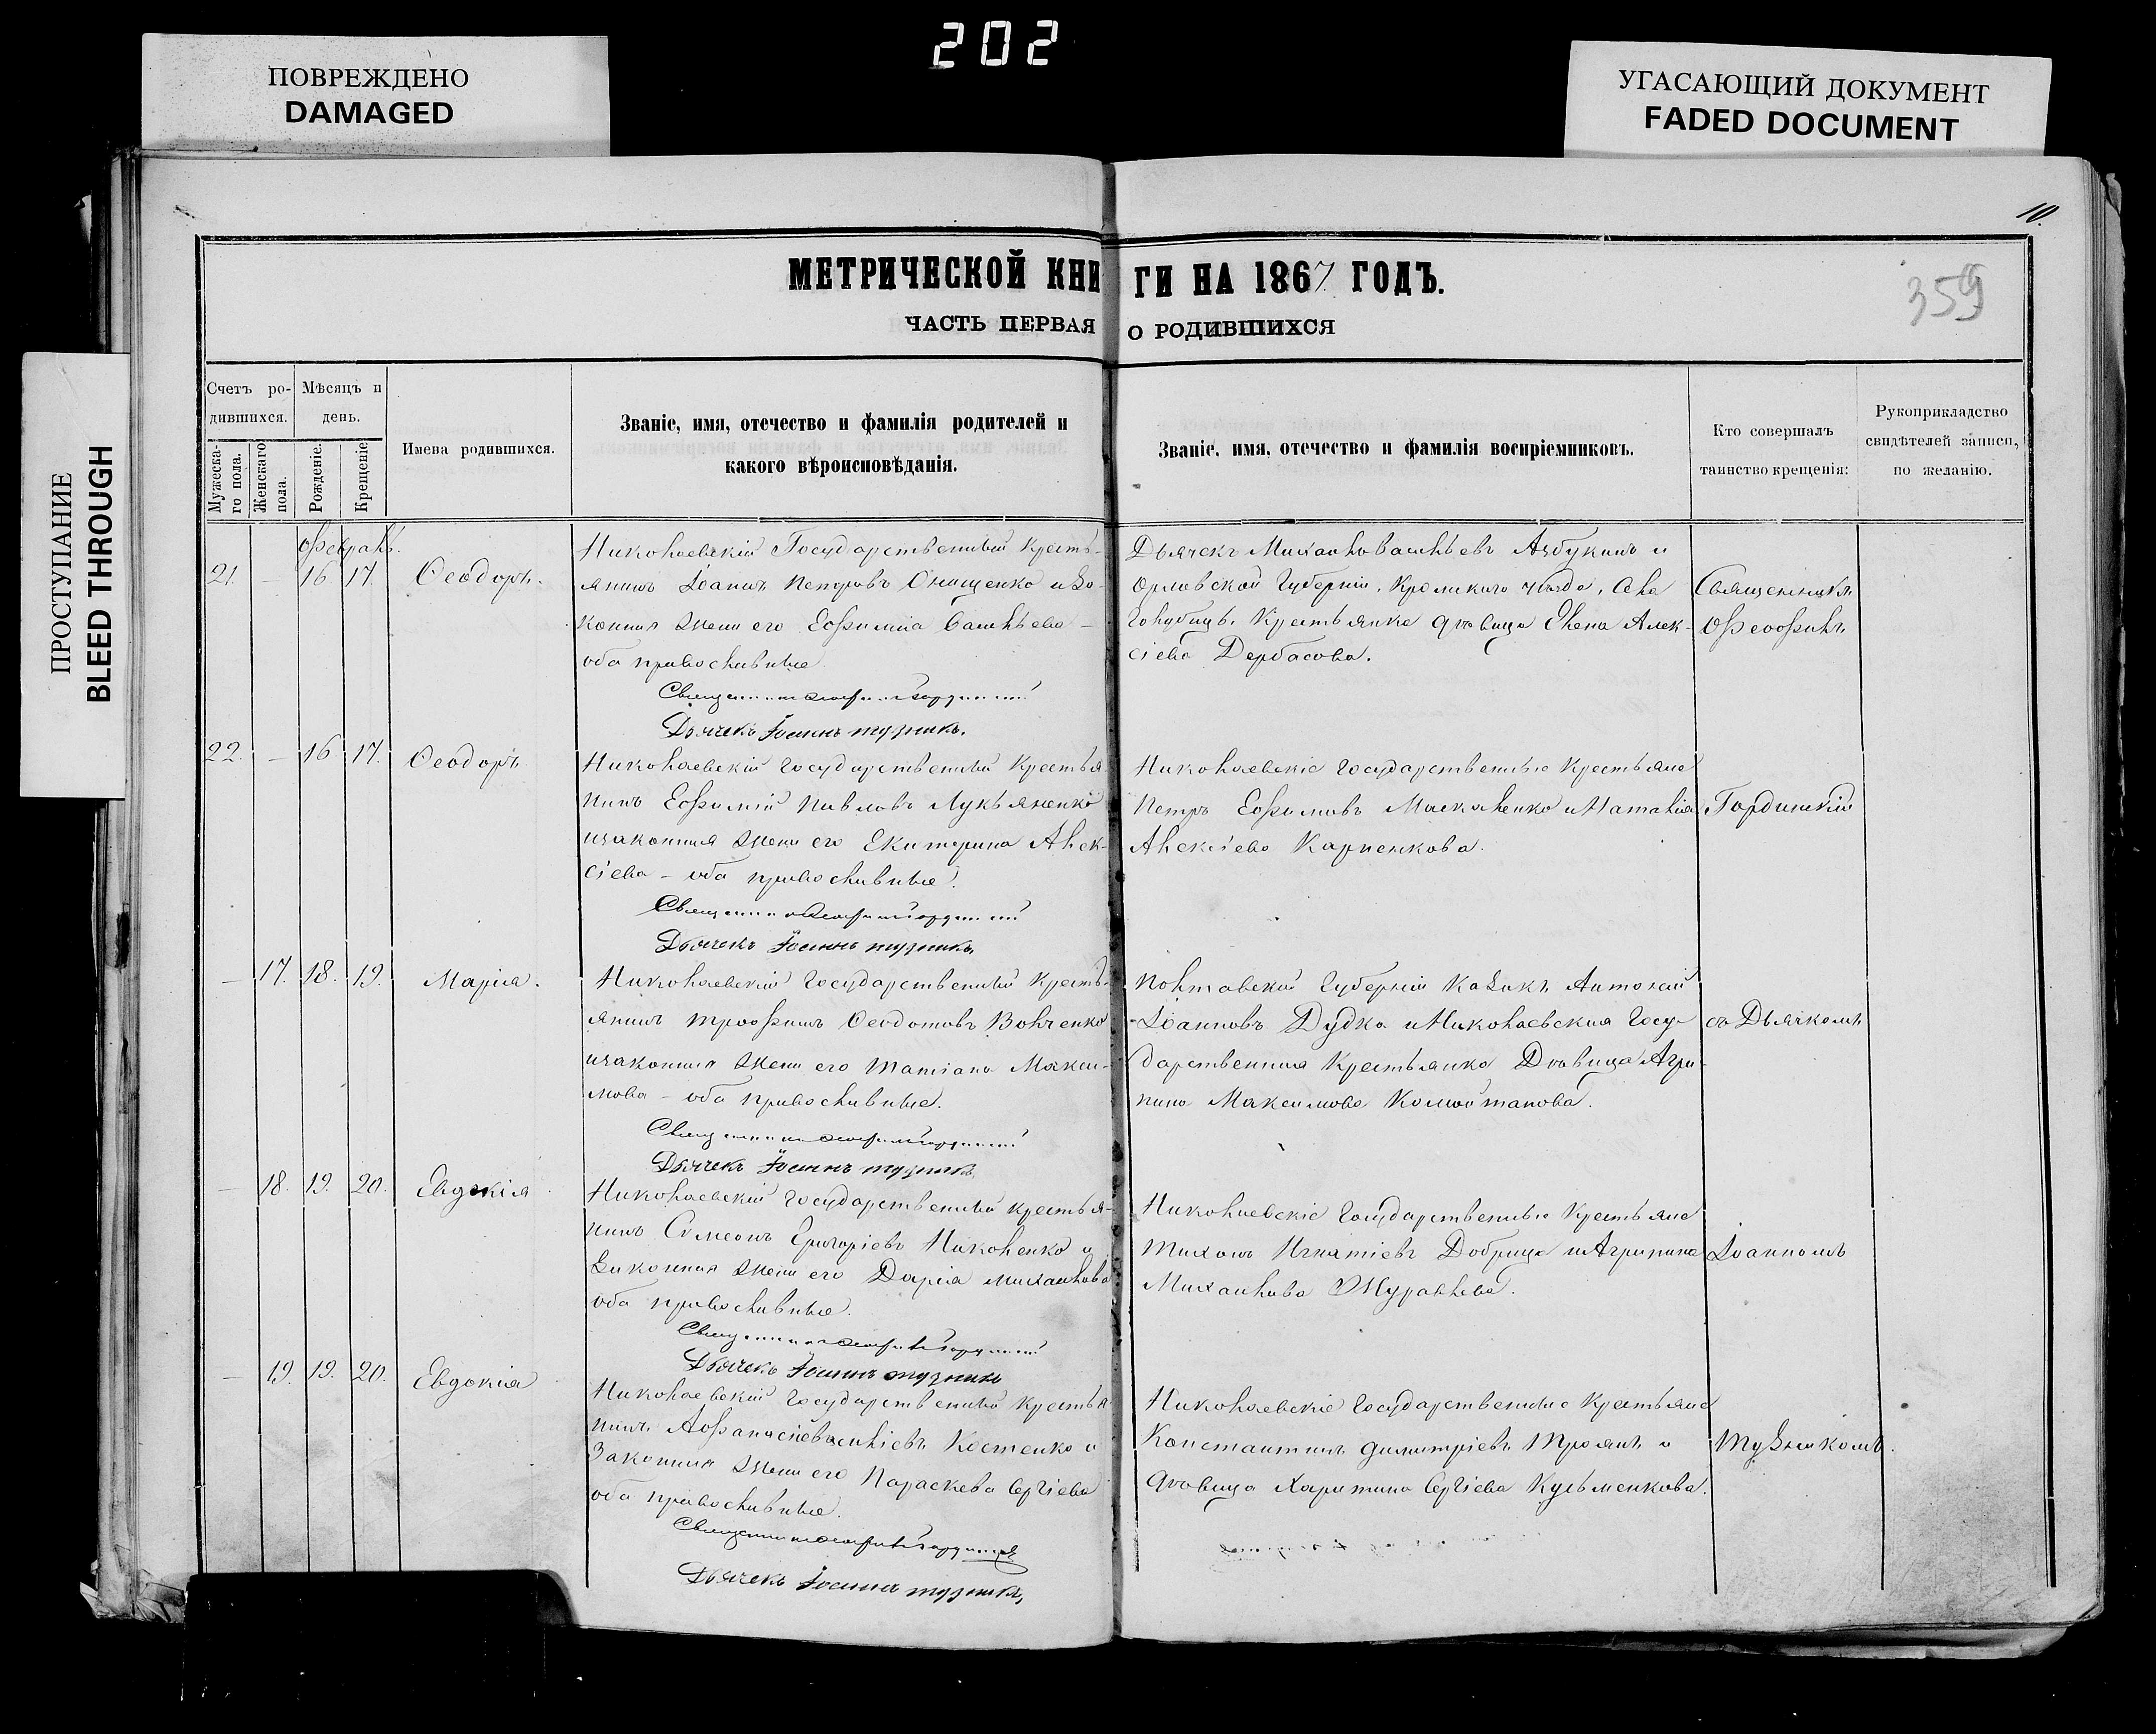 202
ПОВРЕЖДЕНО
DAMAGED
УГАСАЮЩИЙ ДОКУМЕНТ
FADED DOCUMENT
ПРОСТУПАНИЕ
BLEED THROUGH
10.
359
МЕТРИЧЕСКОЙ КНИГИ НА 1867 ГОДЪ.
ЧАСТЬ ПЕРВАЯ О РОДИВШИХСЯ
Счетъ ро-
дившихся.
Мужеска-
го пола.
Женскаго
пола.
Мѣсяцъ и
день.
Рожденіе.
Крещеніе
Имена родившихся.
Званіе, имя, отечество и фамилія родителей и
какого вѣроисповѣданія.
Званіе, имя, отечество и фамилія воспріемниковъ.
Кто совершалъ
таинство крещенія:
Рукоприкладство
свидѣтелей записи,
по желанію.
Февраль.
21. — 16 17. Ѳеодоръ.
Николаевскій Государственный Кресть-
янинъ Іоаннъ Петровъ Онищенко и за-
конная жена его Евфимія Васильева —
оба православные
Дьячекъ Іоаннъ Тузникъ.
Дьячекъ Михаилъ Васильевъ Азбукинъ и
Орловской Губерніи, Кромскаго уѣзда, села
Голубицъ, Крестьянка дѣвица Елена Алек-
сіева Дербасова.
Священникъ
Феофилъ
22. — 16 17. Ѳеодоръ
Николаевскій Государственный Крестья-
нинъ Евфимій Павловъ Лукьяненко
и законная жена его Екатерина Алек-
сіева — оба православные.
Дьячекъ Іоаннъ Тузникъ.
Николаевскіе Государственные Крестьяне
Петръ Евфимовъ Маскаленко и Наталія
Алексіева Карпенкова.
Гординскій
— 17. 18. 19. Марія.
Николаевскій Государственный Кресть-
янинъ Трофимъ Ѳеодотовъ Волченко
и законная жена его Татіана Макси-
мова — оба православные.
Дьячекъ Іоаннъ Тузникъ
Полтавской Губерніи Казакъ Антоній
Іоанновъ Дудка и Николаевская Госу-
дарственная Крестьянка Дѣвица Агри-
пина Максимова Коломойтапова.
съ Дьячкомъ
— 18. 19. 20. Евдокія
Николаевскій Государственный Крестья-
нинъ Симеонъ Григоріевъ Николенко и
Законная жена его Дарія Михаилова
оба православные.
Дьячекъ Іоаннъ Тузникъ
Николаевскіе Государственные Крестьяне
Тихонъ Игнатіевъ Добрица и Агрипина
Михаилова Журавлева.
Іоанномъ
— 19. 19. 20. Евдокія
Николаевскій Государственный Крестья-
нинъ Афанасій Васильевъ Костенко и
Законная жена его Параскева Сергіева
оба православные.
Дьячекъ Іоаннъ Тузникъ,
Николаевскіе Государственные Крестьяне
Константинъ Димитріевъ Троянъ и
дѣвица Харитина Сергіева Кузьменкова.
Тузникомъ.